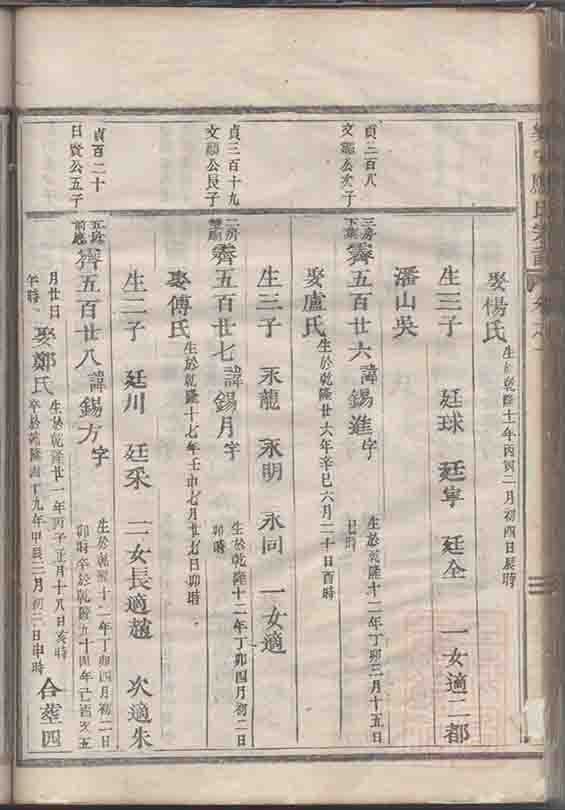 娶楊氏 生於乾隆十一年丙寅二月初四日辰時
生三子 廷球 廷寧 廷全 一女適二都
潘山吳
貞三百八
文顯公次子
三房
霽五百廿六 諱錫進 字 生於乾隆十二年丁卯三月十五日
巳時
娶盧氏 生於乾隆廿六年辛巳六月二十日酉時
生三子 永龍 永明 永同 一女適
貞三百十九
文顯公長子
二房
霽五百廿七 諱錫月 字 生於乾隆十二年丁卯四月初二日
卯時
娶傅氏 生於乾隆十七年壬申七月廿七日卯時
生二子 廷川 廷采 二女長適趙 次適朱
貞百二十
日贊公五子
霽五百廿八 諱錫方 字 生於乾隆十二年丁卯四月初二日
卯時卒於乾隆五十四年己酉又五
月廿日
午時
娶鄭氏 生於乾隆廿一年丙子正月十八日亥時
卒於乾隆四十九年甲辰二月初二日申時 合葬四